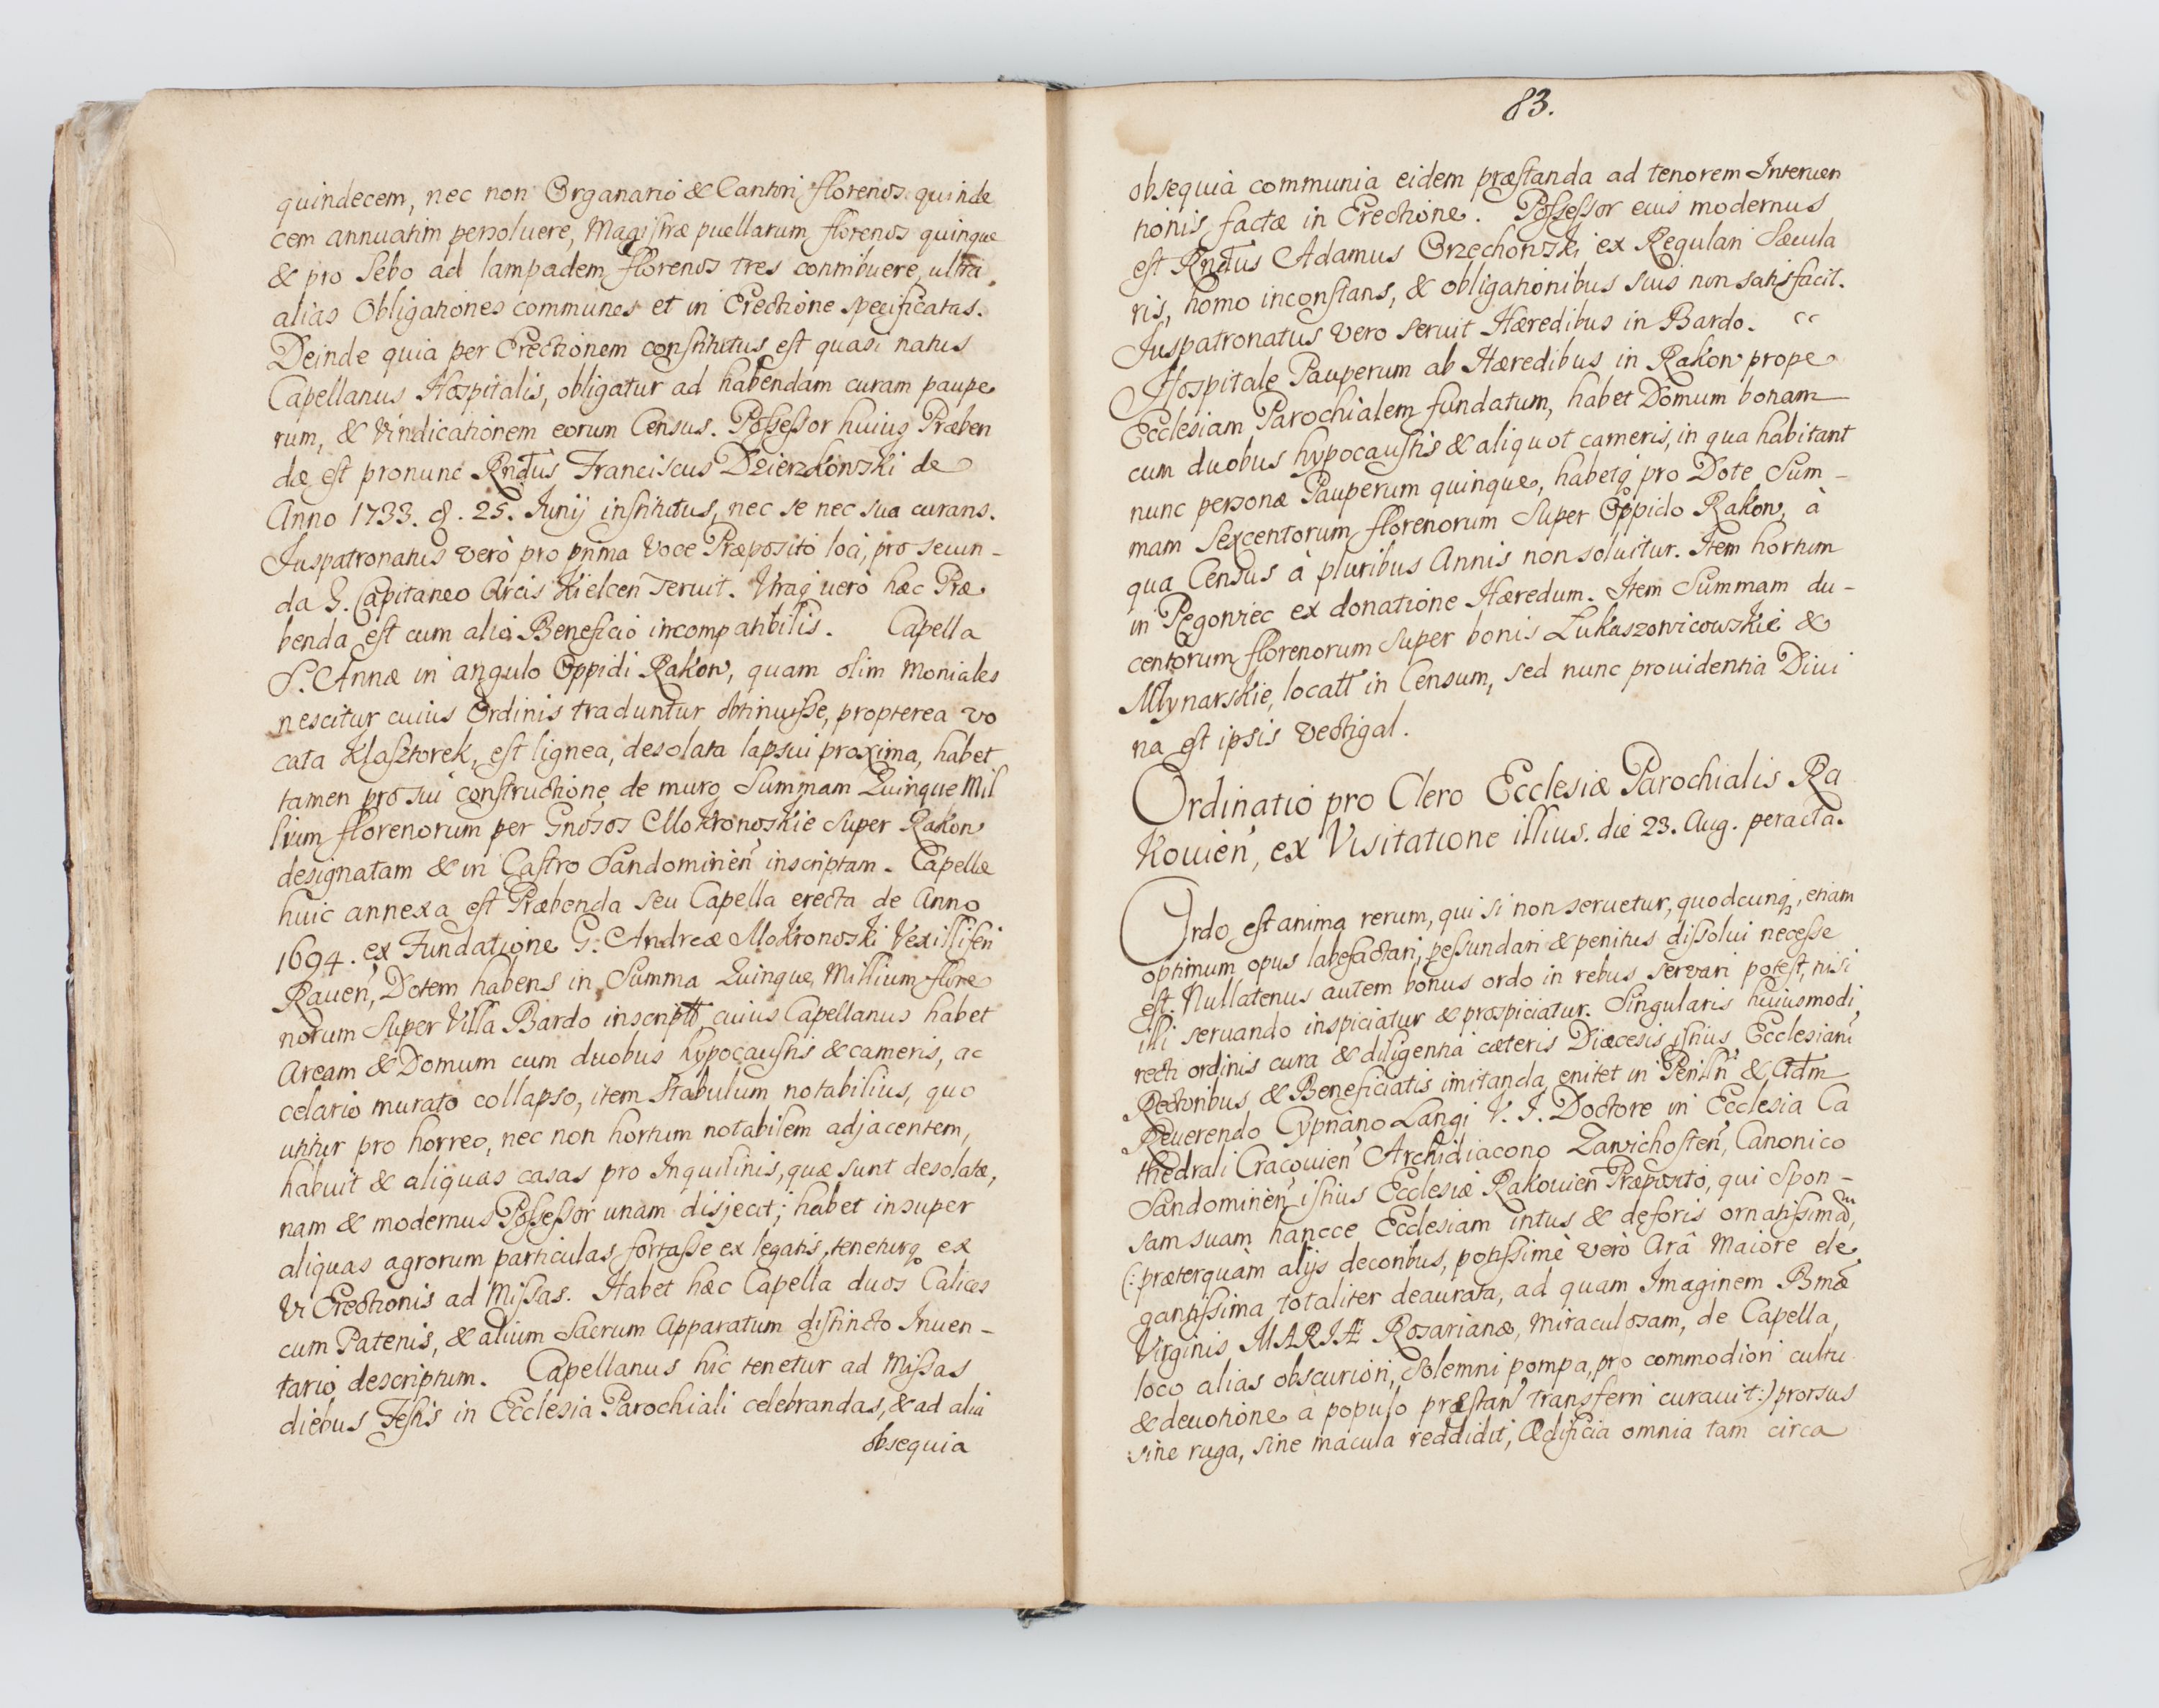 quindecem, nec non Organario & Cantori florenos quinde
cem annuatim persoluere, Magistræ puellarum florenos quinque
& pro Sebo ad lampadem florenos tres contribuere, ultra
alias Obligationes communes et in Erectione specificatas.
Deinde quia per Erectionem constitutus est quasi natus
Capellanus Hospitalis, obligatur ad habendam curam paupe
rum, & Vindicationem eorum Census. Possessor huius Præben
dæ est pronunc Rndus Franciscus Dzierzkowski de
Anno 1733. 8. 25. Junij institutus, nec se nec sua curans.
Juspatronatus verò pro prima Voce Præposito loci, pro secun-
da G. Capitaneo Arcis Kielcen seruit. Utraq verò hæc Præ
benda est cum alio Beneficio incompatibilis. Capella
S. Annæ in angulo Oppidi Rakow, quam olim Moniales
nescitur cuius Ordinis traduntur obtinuisse, propterea vo
cata Klasztorek, est lignea, desolata lapsui proxima, habet
tamen pro sui constructione de muro Summam Quinque Mil
lium florenorum per Gnosos Mokronoskie super Rakow
designatam & in Castro Sandomirien inscriptam. Capellæ
huic annexa est Præbenda seu Capella erecta de Anno
1694. ex Fundatione G. Andreæ Mokronoski Vexilliferi
Rauen, Dotem habens in Summa Quinque Millium flore
norum super Villa Bardo inscriptt, cuius Capellanus habet
Aream & Domum cum duobus hypocaustis & cameris, ac
celario murato collapso, item Stabulum notabilius, quo
utitur pro horreo, nec non hortum notabilem adjacentem,
habuit & aliquas casas pro Inquilinis, quæ sunt desolatæ,
nam & modernus Possessor unam disjecit; habet insuper
aliquas agrorum particulas fortasse ex legatis, teneturq ex
Vi Erectionis ad Missas. Habet hæc Capella duos Calices
cum Patenis, & alium Sacrum Apparatum distincto Inuen-
tario descriptum. Capellanus hic tenetur ad Missas
diebus Festis in Ecclesia Parochiali celebrandas, & ad alia
obsequia
83.
obsequia communia eidem præstanda ad tenorem Interuen
tionis factæ in Erectione. Possessor eius modernus
est Rndus Adamus Orzechowski ex Regulari Sæcula
ris, homo inconstans, & obligationibus suis non satisfacit.
Juspatronatus vero seruit Hæredibus in Bardo.
Hospitale Pauperum ab Hæredibus in Rakow prope
Ecclesiam Parochialem fundatum, habet Domum bonam
cum duobus hypocaustis & aliquot cameris, in qua habitant
nunc personæ Pauperum quinque, habetq pro Dote Sum-
mam Sexcentorum florenorum super Oppido Rakow, à
qua Census à pluribus Annis non soluitur. Item hortum
in Pęgowiec ex donatione Hæredum. Item Summam du-
centorum florenorum super bonis Łukaszowicowskie &
Młynarskie, locatt in Censum, sed nunc prouidentia Diui
na est ipsis vectigal.
Ordinatio pro Clero Ecclesiæ Parochialis Ra
kouien, ex Visitatione illius. die 23. Aug. peracta.
Ordo est anima rerum, qui si non seruetur, quodcunq, etiam
optimum opus labefactari, pessundari & penitus dissolui necesse
est. Nullatenus autem bonus ordo in rebus servari potest, nisi
illi seruando inspiciatur & prospiciatur. Singularis huiusmodi
recti ordinis cura & diligentia cæteris Diæcesis istius Ecclesiarũ
Rectoribus & Beneficiatis imitanda enitet in Perilln & Adm
Reuerendo Cypriano Langi V. J. Doctore in Ecclesia Ca
thedrali Cracouien Archidiacono Zawichosten, Canonico
Sandomirien istius Ecclesiæ Rakouien Præposito, qui Spon-
sam suam hancce Ecclesiam intus & deforis ornatissimã,
(: præterquàm alijs decoribus, potissimè verò Arâ Maiore ele
gantissima totaliter deaurata, ad quam Imaginem Bmæ
Virginis MARIÆ Rosarianæ, Miraculosam, de Capella,
loco alias obscuriori, Solemni pompa, pro commodiori cultu
& deuotione à populo præstan transferri curauit :) prorsus
sine ruga, sine macula reddidit, Ædificia omnia tam circa